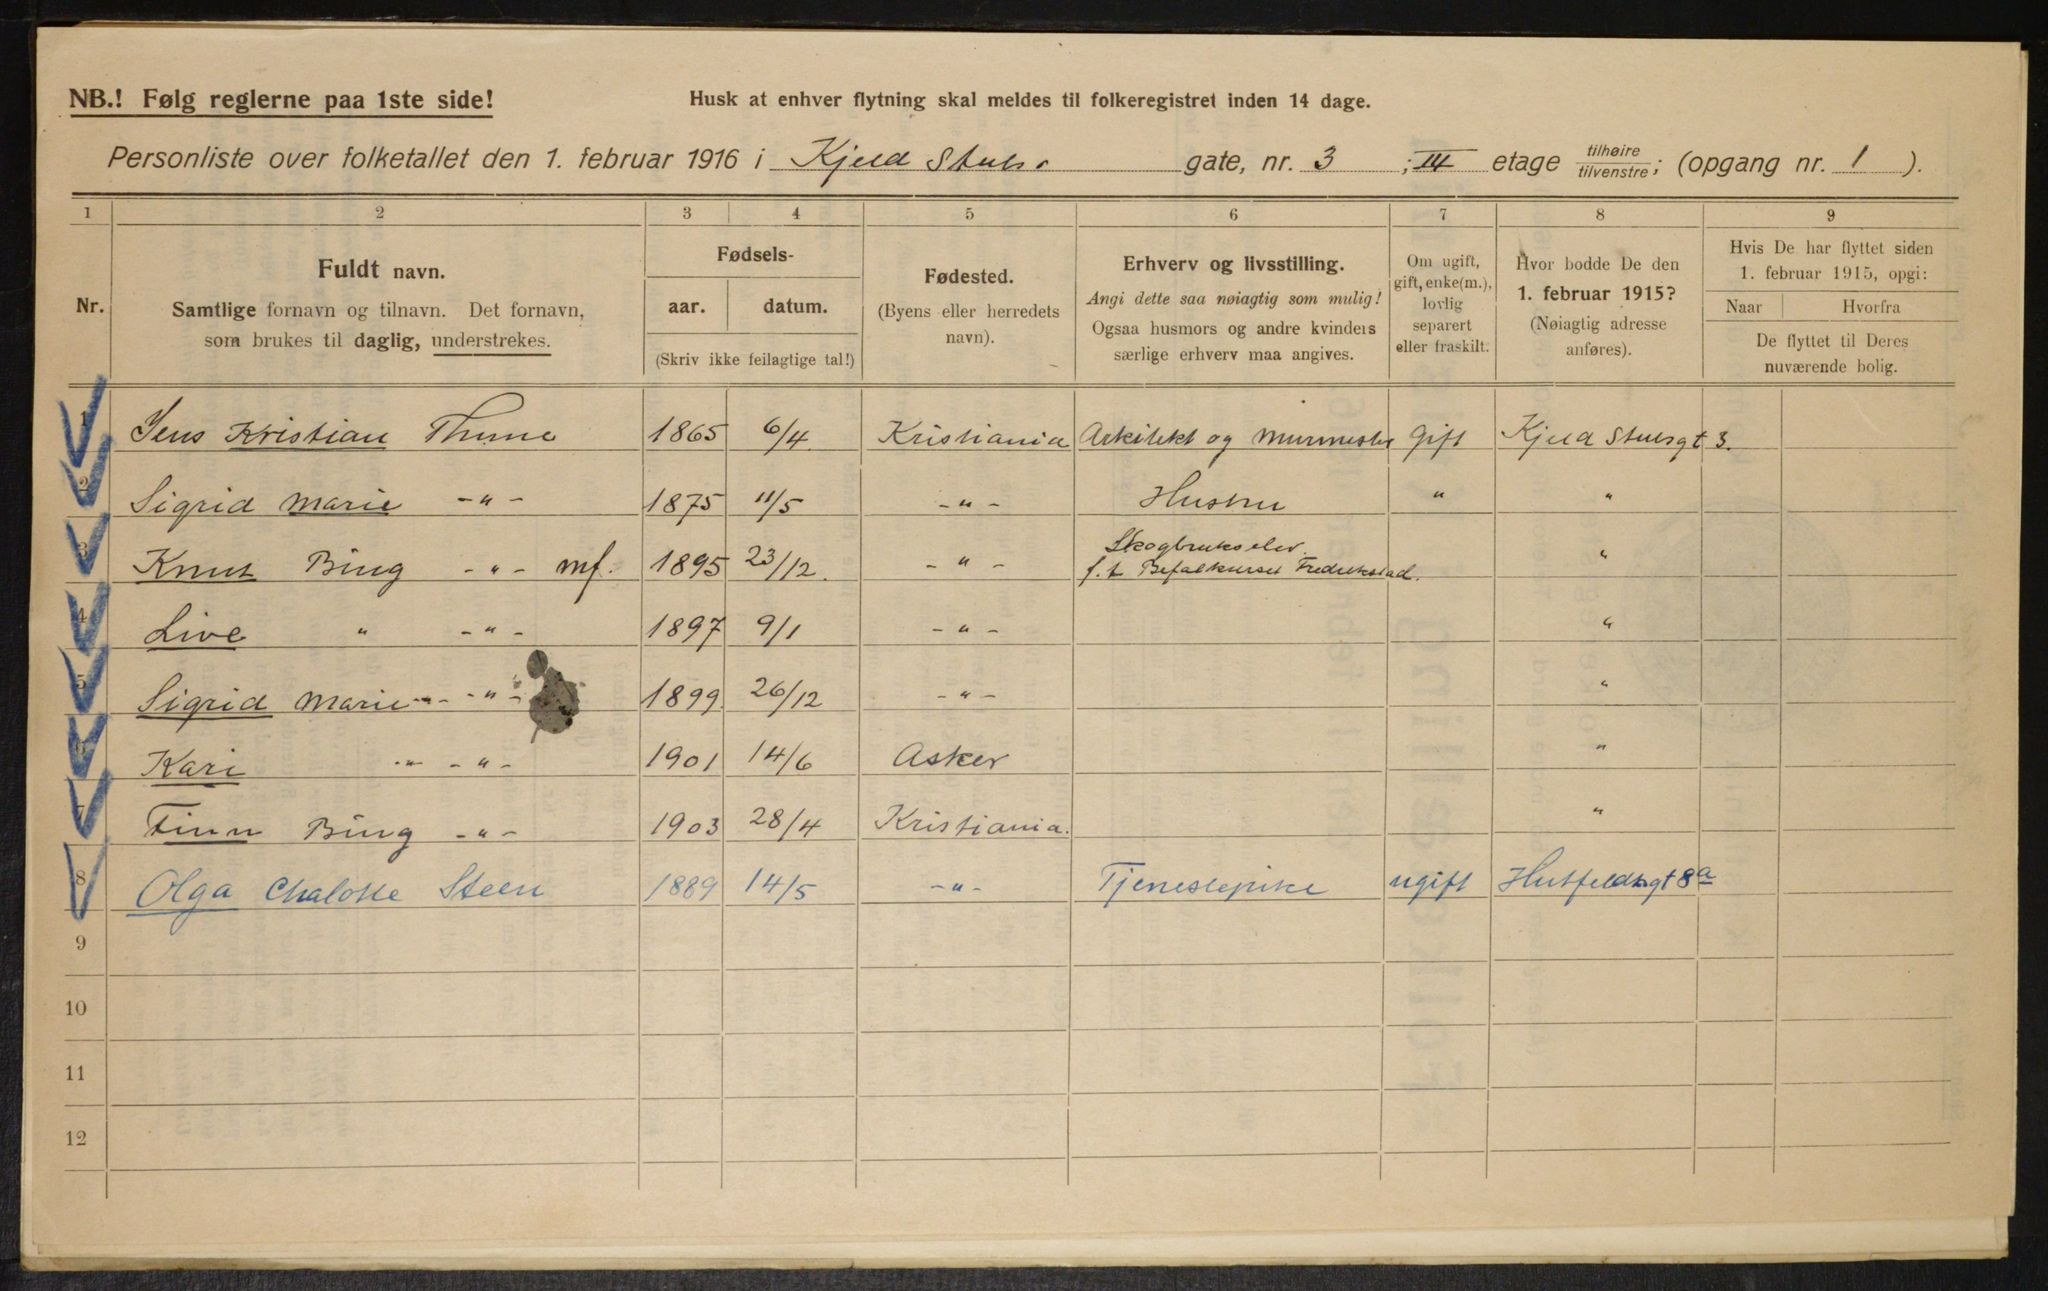 NB.! Følg reglerne paa 1ste side!
Husk at enhver flytning skal meldes til folkeregistret inden 14 dage.
Personliste over folketallet den 1. februar 1916 i Kjeld Stubs gate, nr. 3; III etage tilhøire tilvenstre; (opgang nr. 1).
1 2 3 4 5 6 7 8 9
Nr.
Fuldt navn.
Samtlige fornavn og tilnavn. Det fornavn,
som brukes til daglig, understrekes.
Fødsels-
aar. datum.
(Skriv ikke feilagtige tal!)
Fødested.
(Byens eller herredets
navn).
Erhverv og livsstilling.
Angi dette saa nøiagtig som mulig!
Ogsaa husmors og andre kvinders
særlige erhverv maa angives.
Om ugift,
gift, enke(m.),
lovlig
separert
eller fraskilt.
Hvor bodde De den
1. februar 1915?
(Nøiagtig adresse
anføres).
Hvis De har flyttet siden
1. februar 1915, opgi:
Naar Hvorfra
De flyttet til Deres
nuværende bolig.
1 Jens Kristian Thune 1865 6/4. Kristiania Arkitekt og Murmester Gift Kjeld Stubsgt 3.
2 Sigrid Marie -"- 1875 11/5 -"- Hustru " "
3 Knut Bing -"- mf. 1895 23/12. -"- Skogbrukselev. "
f.t Befalkurset Fredrikstad.
4 Live " -"- 1897 9/1 -"- "
5 Sigrid Marie -"- -"- 1899 26/12 -"- "
6 Kari -"- -"- 1901 14/6 Asker "
7 Finn Bing -"- 1903 28/4 Kristiania. "
8 Olga Chalotte Steen 1889 14/5 -"- Tjenestepike ugift Huitfeldtsgt 8a
9
10
11
12